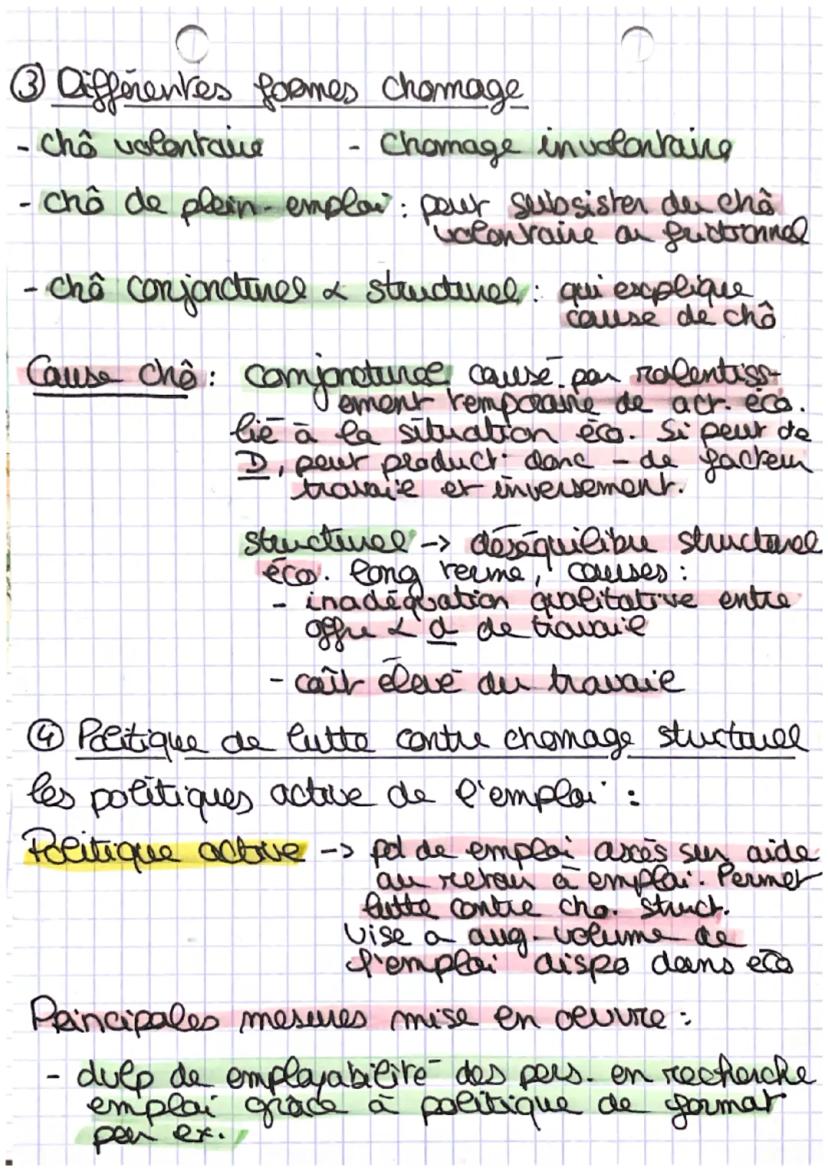 ③ Différentes formes chomage
- chô volontaire - Chomage involontaire
- chô de plein-emploi : peut subsister du chô
volontaire ou frictionnel
- chô conjoncturel & structurel : qui explique
cause de chô
Cause chô : conjoncturel causé par ralentiss-
ement temporaire de act. éco.
lié à la situation éco. Si peut de
D, peut product° donc - de facteur
travail et inversement.
structurel -> déséquilibre structurel
éco. long terme, causes :
- inadéquation qualitative entre
offre & d de travail
- coût élevé du travail
④ Politique de lutte contre chomage stucturel
les politiques active de l'emploi :
Politique active -> pol de emploi axés sur aide
au retour à emploi. Permet
lutte contre cho. struct.
Vise a aug. volume de
l'emploi dispo dans eco
Principales mesures mise en oeuvre :
- dvlp de employabilité des pers. en recherche
emploi grâce à politique de format°
par ex.